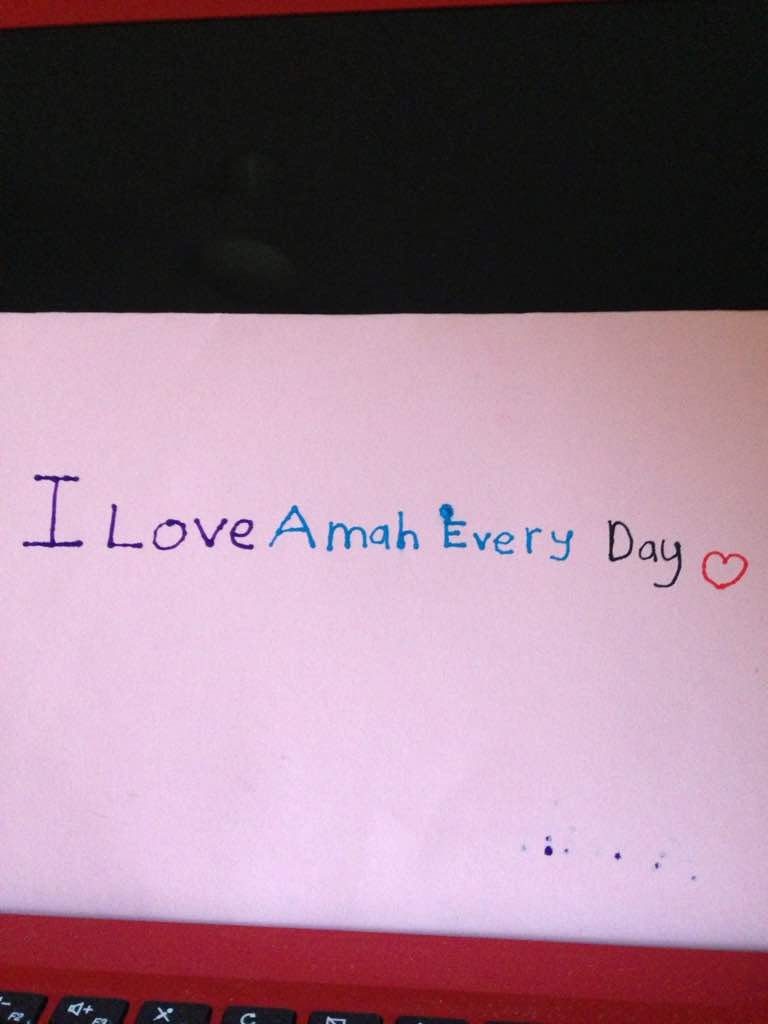 I Love Amah Every Day
F2